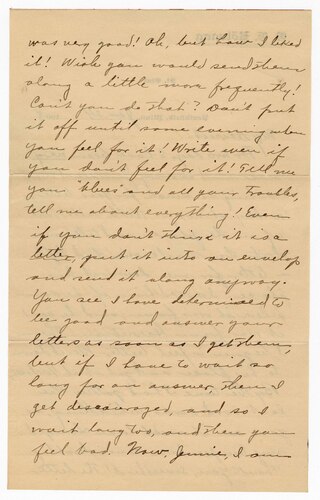 was very good! Oh, but how I liked
it! Wish you would send them
along a little more frequently!
Can't you do that? Don't put
it off until some evening when
you feel for it! Write even if
you don't feel for it! Tell me
your "blues" and all your troubles,
tell me about everything! Even
if you don't think it is a
letter, put it into an envelop
and send it along anyway.
You see I have determined to
be good and answer your
letters as soon as I get them,
but if I have to wait so
long for an answer, then I
get descouraged, and so I
wait long too, and then you
feel bad. Now, Jennie, I am